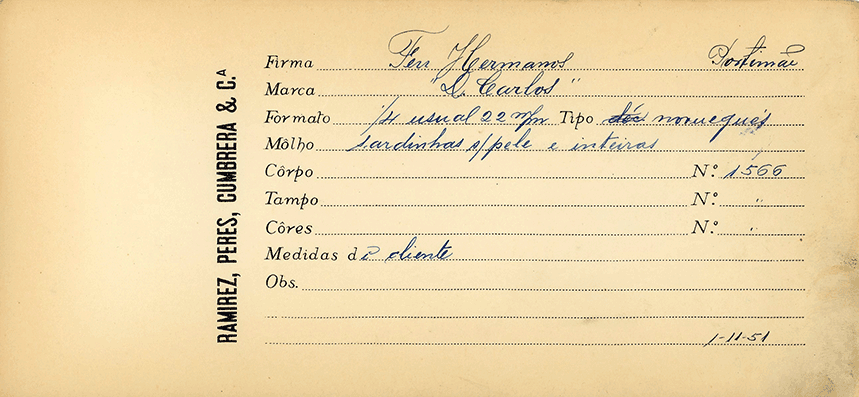 RAMIREZ, PERES, CUMBRERA & C.ª
Firma Feu Hermanos Portimão
Marca "D. Carlos"
Formato 1/4 usual 22 m/m Tipo norueguês
Môlho sardinhas s/pele e inteiras
Côrpo N.º 1566
Tampo N.º "
Côres N.º "
Medidas do cliente
Obs.
1-11-51